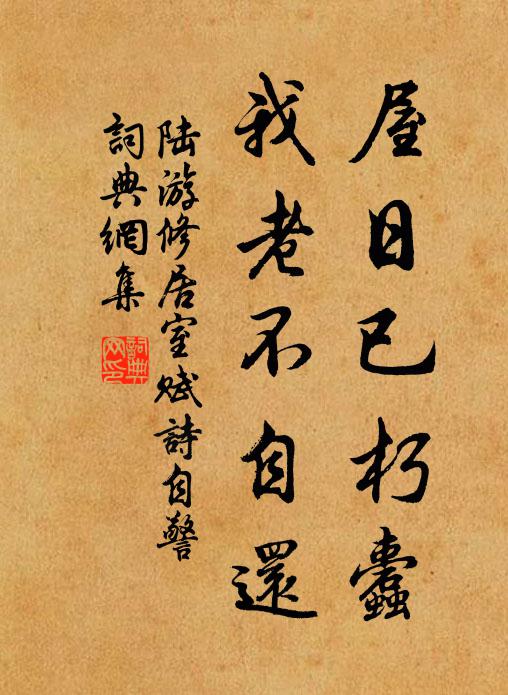 屋日已朽蠹
我老不自還
陸游修居室賦詩自警
詞典網集
詞典網印